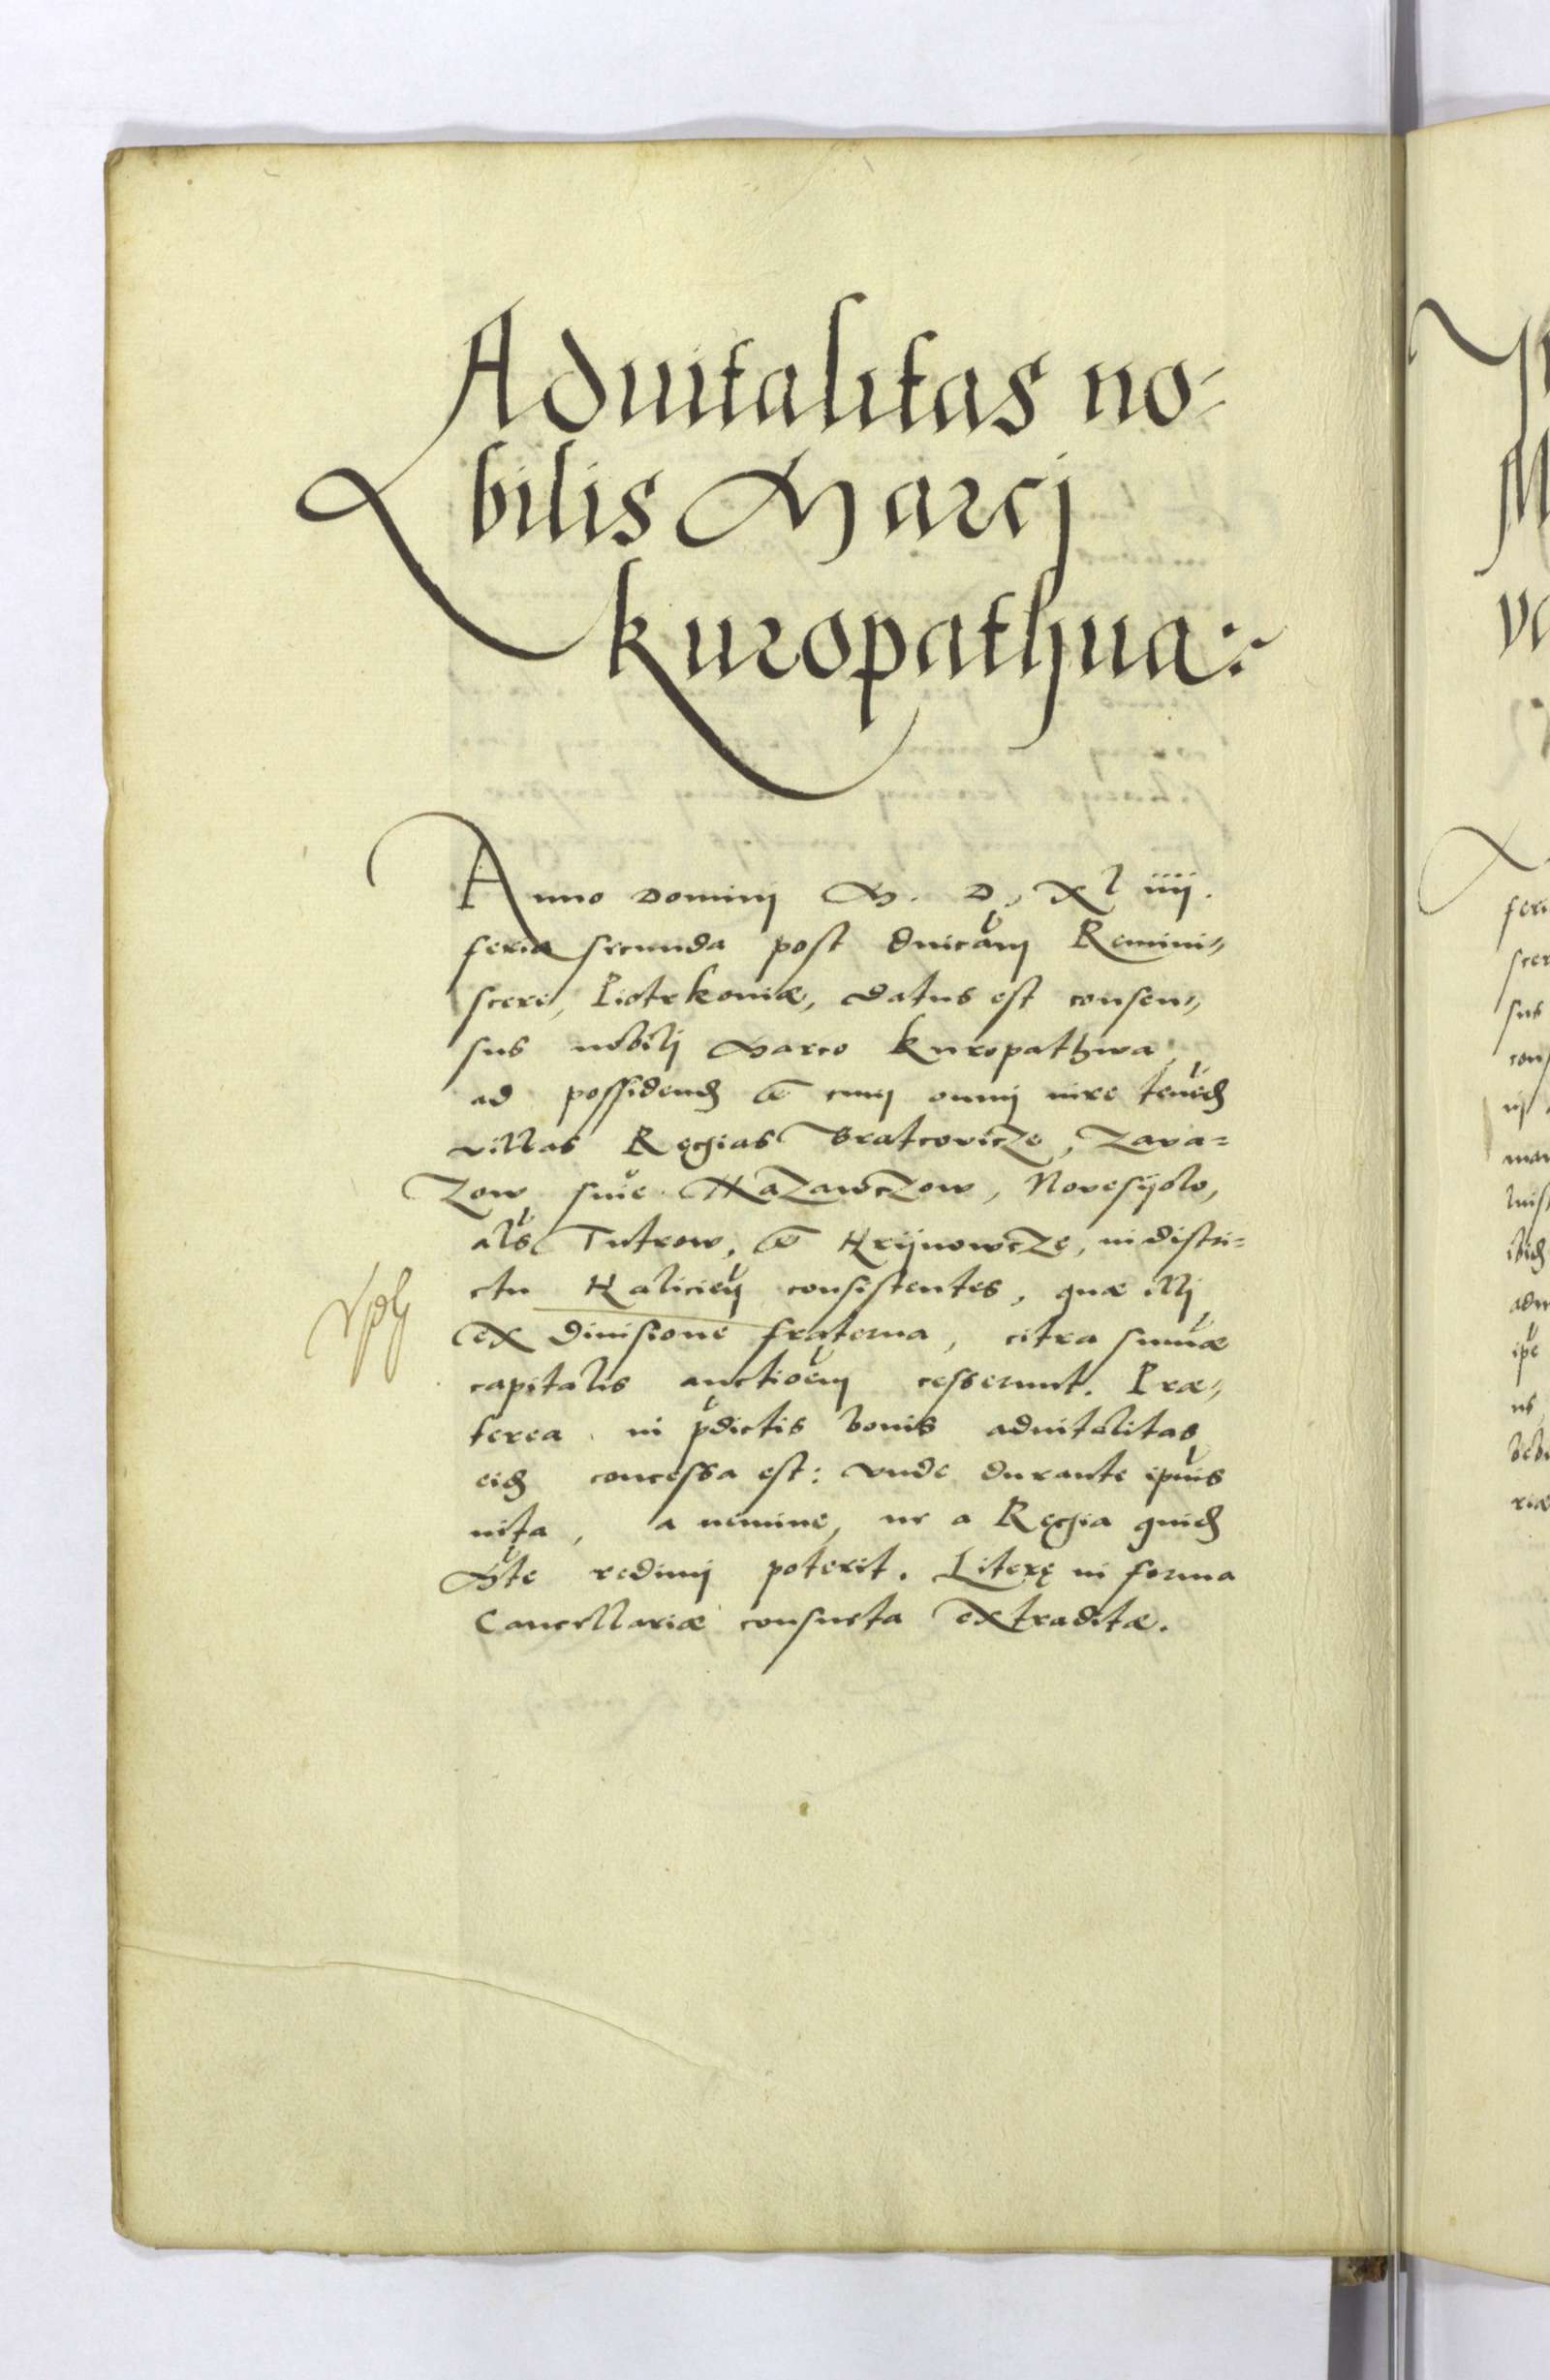 Aduitalitas no-
bilis Marcj
kuropathua:
Anno Dominj M. D. XL iiij.
feria secunda post dnicam Remini-
scere, Piotrkoviæ, datus est consen-
sus nobilj Marco kuropathwa,
ad possidend & cum omnj iure tenend
villas Regias Bratcovicze, Zava-
zow siue Kazawczow, Novesijolo,
als Tutrow, & Hrijnowcze, in distri-
ctu Halicien consistentes, quæ illj
ex diuisione fraterna, citra summæ
capitalis auctioem cesserunt. Præ-
terea in pdictis bonis aduitalitas
eid concessa est: vnde durante ipius
uita, a nemine, ne a Regia quid
Mte redimj poterit. Literę in forma
Cancellariæ consueta extraditæ.